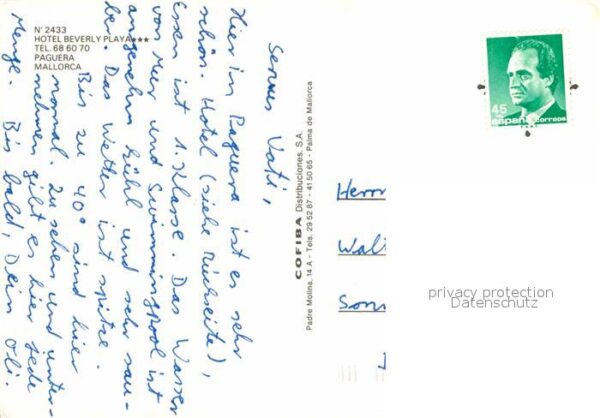 N° 2433
HOTEL BEVERLY PLAYA***
TEL. 68 60 70
PAGUERA
MALLORCA
Servus Vati,
Hier in Paguera ist es sehr
schön. Hotel (siehe Rückseite),
Essen ist 1. Klasse. Das Wasser
von Meer und Swimmingpool ist
angenehm kühl und sehr sau-
ber. Das Wetter ist spitze.
Bis zu 40° sind hier
normal. Zu sehen und unter-
nehmen gibt es hier jede
Menge. Bis bald, Dein Oli.
COFIBA Distribuciones, S.A.
Padre Molina, 14 A - Tels. 29 52 87 - 41 50 65 - Palma de Mallorca
45
españa correos
Herrn
Wal
Sons
privacy protection
Datenschutz